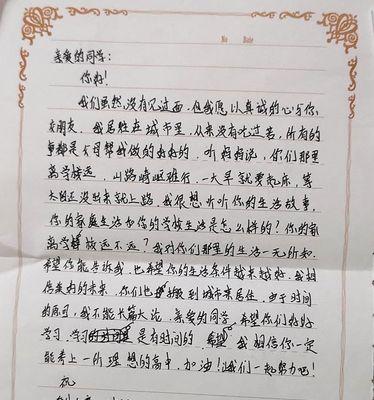 No Date
亲爱的同学:
你好!
我们虽然没有见过面,但我愿以真诚的心与你
交朋友。我居住在城市里,从来没有吃过苦,所有的
事都是父母帮我做的好好的。听妈妈说,你们那里
离学校远,山路崎岖难行,一大早就要起床,等
太阳还没出来就上路。我很想听听你的生活故事,
你的家庭生活和你的学校生活是怎么样的?你的家
离学校远不远?我对你们那里的生活一无所知。
希望你能告诉我,也希望你的生活条件越来越好。我相
信美好的未来,你们也能搬到城市来居住。由于时间
的原因,我不能长篇大论。亲爱的同学,希望你们好好
学习,学习是有时间的,我相信你一定
能考上一所理想的高中,加油!让我们一起努力吧!
祝